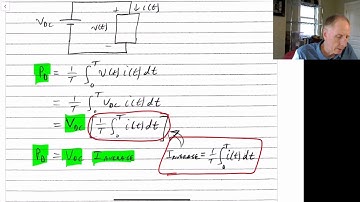 V_DC + v(t) - ↓ i(t)
P_D = 1/T ∫_0^T v(t) i(t) dt
= 1/T ∫_0^T V_DC i(t) dt
= V_DC [1/T ∫_0^T i(t) dt]
P_D = V_DC I_AVERAGE
I_AVERAGE = 1/T ∫_0^T i(t) dt